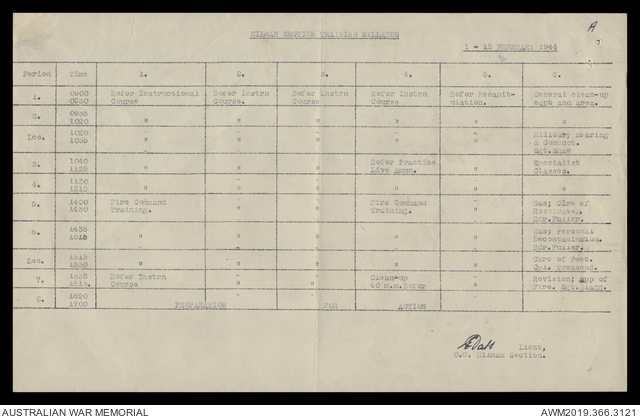 HILMAN SECTION TRAINING SYLLABUS
A
1 - 15 FEBRUARY 1944
Period Time 1. 2. 3. 4. 5. 6.
1. 0900 0930 Bofor Instructional Course Bofor Instrn Course. Bofor Instrn Course Bofor Instrn Course Bofor Recapit-ulation. General clean-up eqpt and area.
2. 0935 1020 " " " " " "
Lec. 1020 1035 " " " " " Military Bearing & Conduct. Sgt. Shaw
3. 1040 1125 " " " Bofor Practice Live Ammn. " Specialist Classes.
4. 1130 1215 " " " " " "
5. 1400 1430 Fire Command Training. " " Fire Command Training. " Gas; Care of Bdr. Fuller.
6. 1435 1515 " " " " " Gas; Personal Decontamination. Bdr. Fuller.
Lec. 1515 1530 " " " " " Care of Feet. Cpl. Townsend.
7. 1535 Bofor Instrn Course " " Clean-up 40 m.m. Bofor " Revision; of Fire. Sgt.
8. 1620 1700 PREPARATION FOR ACTION
Lieut,
O.C. Hilman Section.
AUSTRALIAN WAR MEMORIAL
AWM2019.366.3121